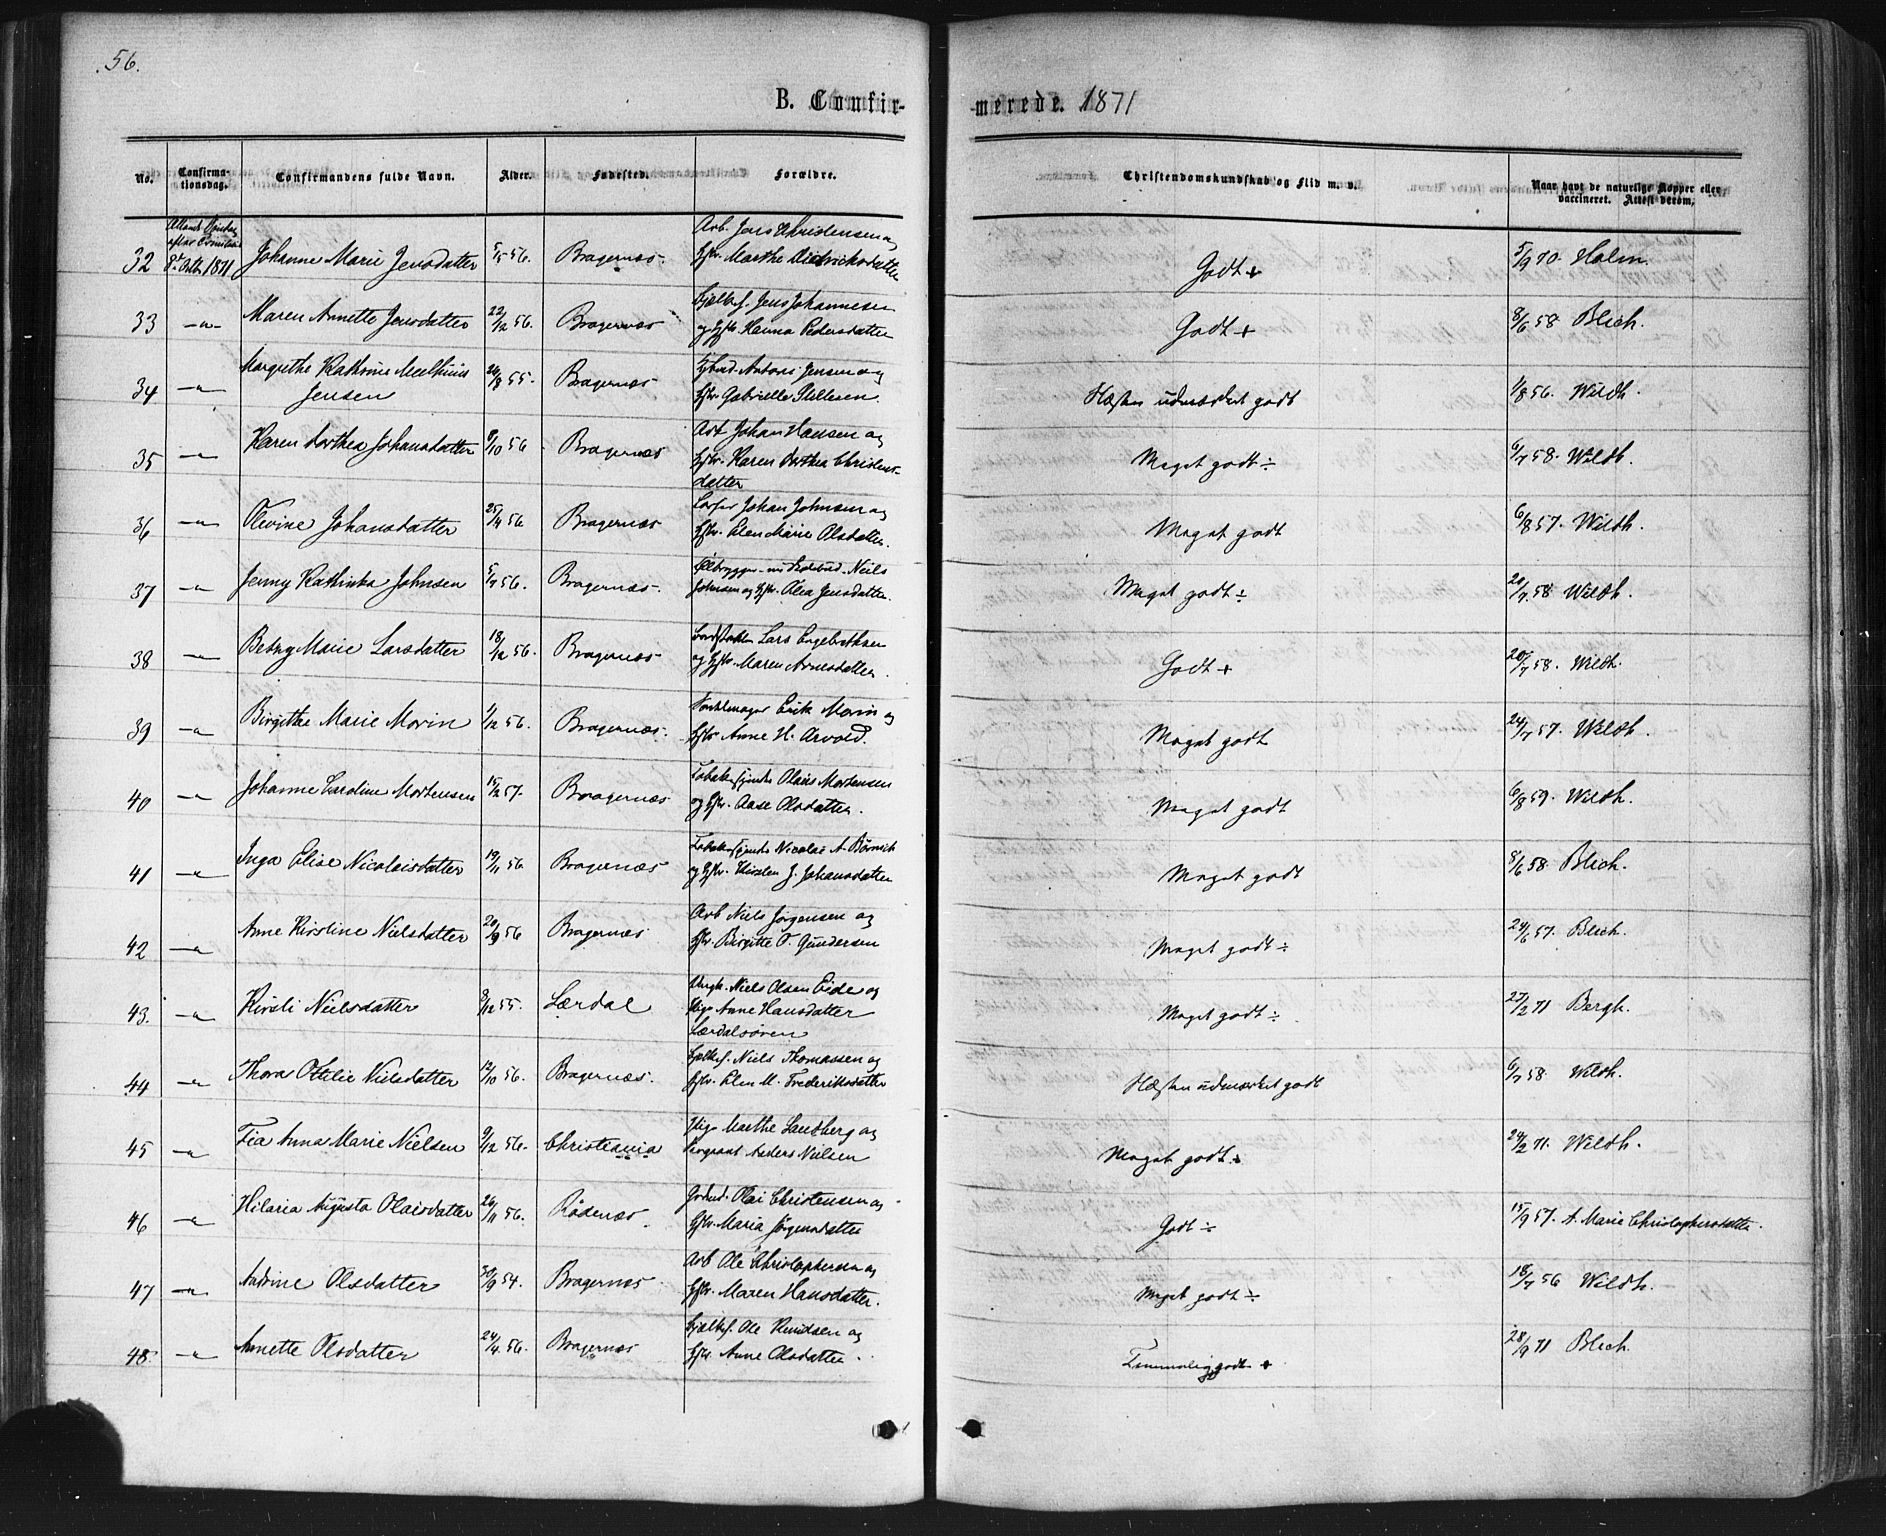 56.
B. Confir-
merede. 1871
No. Confirma-tionsdag. Confirmandens fulde Navn. Alder. Fødested. Forældre. Christendomskundskab og Flid m. v. Naar havt de naturlige Kopper eller vaccineret. Attest derom.
32 8de Octb. 1871 Johanne Marie Jensdatter 5/5 56. Bragernæs. Arb. Jens Christensen og Hstr. Marthe Didriksdatter Godt + 5/9 70. Holm.
33 —"— Maren Annette Jensdatter 22/12 56. Bragernæs Jens Johannesen og Hstr. Hanna Pedersdatter Godt + 8/6 58 Blich.
34 —"— Margrethe Kathrine Meelhuus Jensen 26/8 55. Bragernæs Anton Jensen og Hstr. Gabrielle Pettersen. Næsten udmærket godt 1/8 56. Wildh.
35 —"— Karen Dorthea Johansdatter 9/10 56 Bragernæs Arb Johan Hansen og Hstr. Karen Dorthea Christens-datter Meget godt ÷ 6/7 58. Wildh.
36 —"— Olevine Johansdatter 25/4 56 Bragernæs Johan Johnsen og Hstr. Elen Marie Olsdatter. Meget godt 6/8 57. Wildh.
37 —"— Jenny Kathinka Johnsen 5/7 56. Bragernæs. Niels Johnsen og Hstr. Olea Jensdatter. Meget godt ÷ 20/7 58 Wildh.
38 —"— Betzy Marie Larsdatter 18/12 56. Bragernæs Lars Engebrethsen og Hstr. Maren Arnesdatter. Godt + 20/7 58. Wildh.
39 —"— Birgitte Marie Morin 1/12 56. Bragernæs. Erik Morin og Hstr Anne H. Arvold. Meget godt 24/7 57. Wildh.
40 —"— Johanne Caroline Mortensen 15/2 57. Bragernæs Olaus Mortensen og Hstr. Aase Olsdatter. Meget godt 6/8 59. Wildh.
41 —"— Inga Elise Nicolaisdatter 19/11 56 Bragernæs Nicolai A. og Hstr. J. Johansdatter Meget godt 8/6 58. Blich.
42 —"— Anne Kirstine Nielsdatter 20/9 56 Bragernæs Arb Niels Jørgensen og Hstr. Birgitte O. Gundersen Meget godt ÷ 24/6 57. Blich.
43. —"— Kirsti Nielsdatter 8/12 55. Lærdal Ungk. Niels Olsen Eide og Pige Anne Hansdatter Lærdalsøren Meget godt ÷ 27/2 71 Bergh.
44 —"— Thora Ottilie Nielsdatter 12/10 56. Bragernæs. Niels Thomassen og Hstr. Elen M. Frederiksdatter Næsten udmærket godt 6/7 58 Wildh.
45 —"— Fia Anna Marie Nielsen 9/12 56. Christiania Pige Marthe Sandberg og Anders Nielsen Meget godt ÷ 24/2 71. Wildh.
46 —"— Hilaria Augusta Olaisdatter 26/11 56. Rødenæs. Olai Christensen og Hstr. Maria Jørgensdatter Godt ÷ 15/9 57. A. Marie Christophersdatter.
47 —"— Andrine Olsdatter 30/9 54. Bragernæs Arb Ole Christophersen og Hstr. Maren Hansdatter. Meget godt ÷ 18/7 56 Wildh.
48. —"— Annette Olsdatter 24/4 56. Bragernæs Ole Knudsen og Hstr. Anne Olsdatter. Temmelig godt + 28/9 71 Blich.